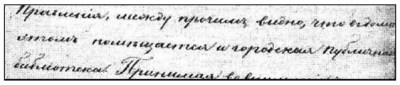 Правленія, между прочимъ видно, что въ домѣ
этомъ помѣщается и городская публичная
библіотека. Принимая во